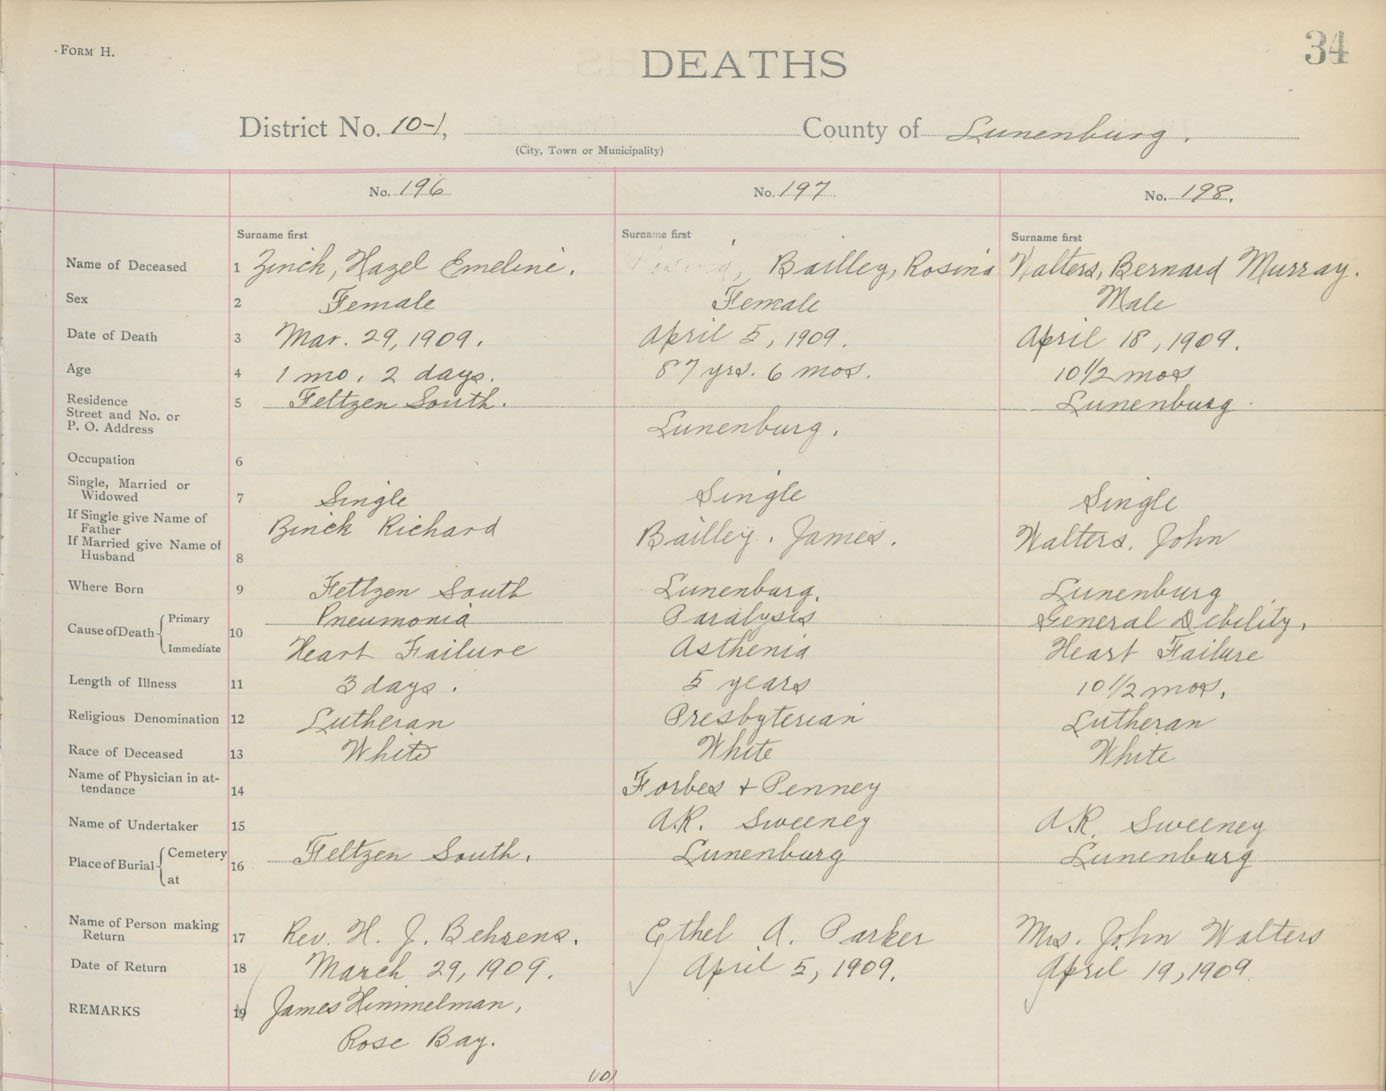 Form H.
34
DEATHS
District No. 10-1, County of Lunenburg.
(City, Town or Municipality)
No. 196 No. 197 No. 198.
Surname first Surname first Surname first
Name of Deceased 1 Zinck, Hazel Emeline. Bailley, Rosina Walters, Bernard Murray.
Sex 2 Female Female Male
Date of Death 3 Mar. 29, 1909. April 5, 1909. April 18, 1909.
Age 4 1 mo, 2 days. 87 yrs. 6 mos. 10 1/2 mos
Residence 5 Feltzen South. Lunenburg.
Street and No. or
P. O. Address Lunenburg.
Occupation 6
Single, Married or
Widowed 7 Single Single Single
If Single give Name of
Father Binck Richard Bailley. James. Walters. John
If Married give Name of
Husband 8
Where Born 9 Feltzen South Lunenburg. Lunenburg
Cause of Death 10 Primary Pneumonia Paralysis General Debility.
Immediate Heart Failure Asthenia Heart Failure
Length of Illness 11 3 days. 5 years 10 1/2 mos.
Religious Denomination 12 Lutheran Presbyterian Lutheran
Race of Deceased 13 White White White
Name of Physician in at-
tendance 14 Forbes + Penney
Name of Undertaker 15 A.R. Sweeney A.R. Sweeney
Place of Burial 16 Cemetery Feltzen South. Lunenburg Lunenburg
at
Name of Person making
Return 17 Rev. H. J. Behrens. Ethel A. Parker Mrs. John Walters
Date of Return 18 March 29, 1909. April 5, 1909. April 19, 1909
REMARKS 19 James Himmelman,
Rose Bay.
(10)